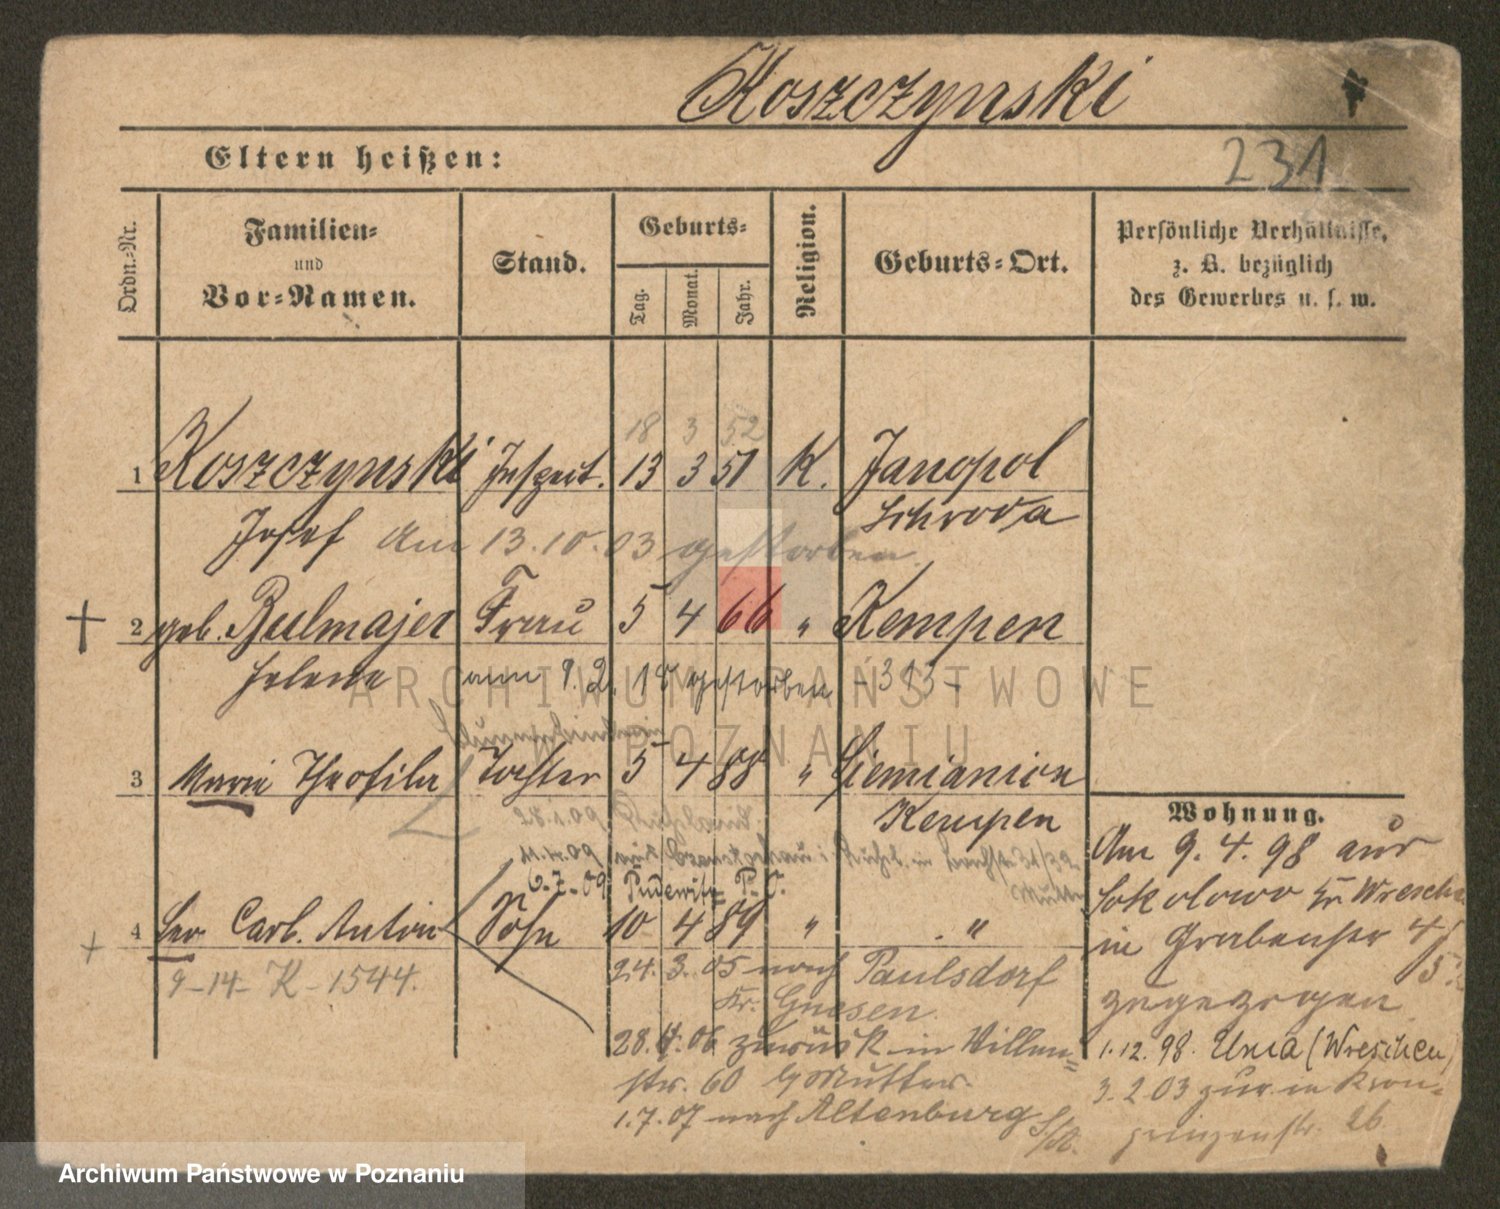 Koszczynski
Eltern heißen:
231
Ordn.=Nr.
Familien=
und
Vor=Namen.
Stand.
Geburts=
Tag.
Monat.
Jahr.
Religion.
Geburts=Ort.
Persönliche Verhältnisse,
z. B. bezüglich
des Gewerbes u. s. w.
18 3 52
1 Koszczynski Inspect. 13 3 51 K. Janopol
Josef am 13.10.03 gestorben. Schroda
2 geb. Bulmajer Frau 5 4 66 " Kempen
Helene am 9.2.18 gestorben -313-
3 Marie Theofila Tochter 5 4 88 " Siemianice
Kempen
28.1.09
11.4.09
6.7.09 Pudewitz P. O.
4 Leo Carl. Anton Sohn 10 4 89 " "
9-14- K-1544.
24.3.05 nach Paulsdorf
Kr. Gnesen.
28.4.06 zurück in Villen=
str. 60 b/Mutter.
1.7.07 nach Altenburg S/A.
Wohnung.
Am 9.4.98 aus
Sokolowo Kr. Wresch
in Grabenstr 4
5.
zugezogen
1.12.98. Unia (Wreschen)
3.2.03 zur. in Kron=
prinzenstr. 26
ARCHIWUM PAŃSTWOWE
W POZNANIU
Archiwum Państwowe w Poznaniu